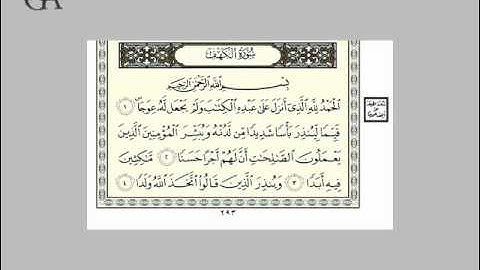 سُورَةُ الْكَهْفِ
بِسْمِ اللَّهِ الرَّحْمَٰنِ الرَّحِيمِ
الْحَمْدُ لِلَّهِ الَّذِي أَنزَلَ عَلَىٰ عَبْدِهِ الْكِتَٰبَ وَلَمْ يَجْعَل لَّهُ عِوَجَا ۜ ١
قَيِّمًا لِّيُنذِرَ بَأْسًا شَدِيدًا مِّن لَّدُنْهُ وَيُبَشِّرَ الْمُؤْمِنِينَ الَّذِينَ
يَعْمَلُونَ الصَّٰلِحَٰتِ أَنَّ لَهُمْ أَجْرًا حَسَنًا ٢ مَّٰكِثِينَ
فِيهِ أَبَدًا ٣ وَيُنذِرَ الَّذِينَ قَالُوا اتَّخَذَ اللَّهُ وَلَدًا ٤
٢٩٣